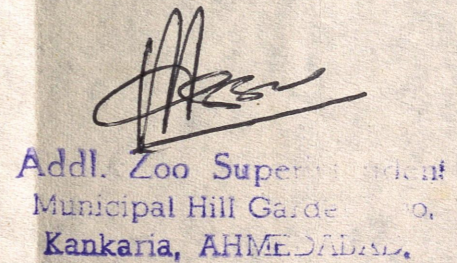 Addl. Zoo Superintendent
Municipal Hill Garde
Kankaria, AHMEDABAD.